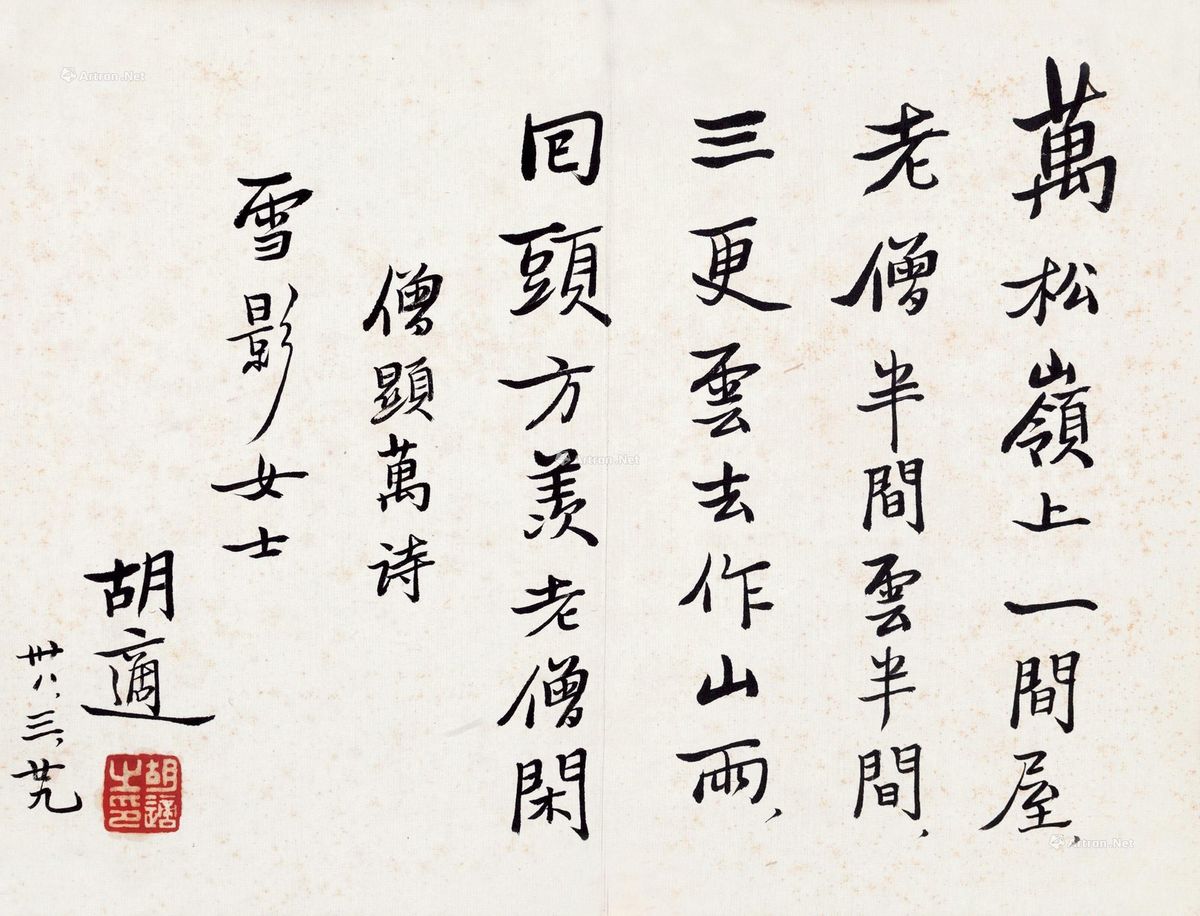 萬松嶺上一間屋、
老僧半間雲半間、
三更雲去作山雨、
囘頭方羨老僧閑
僧顕萬诗
雪影女士
胡適
卅八、三、廿九
胡適之印
Artron.Net
Artron.Net
Artron.Net